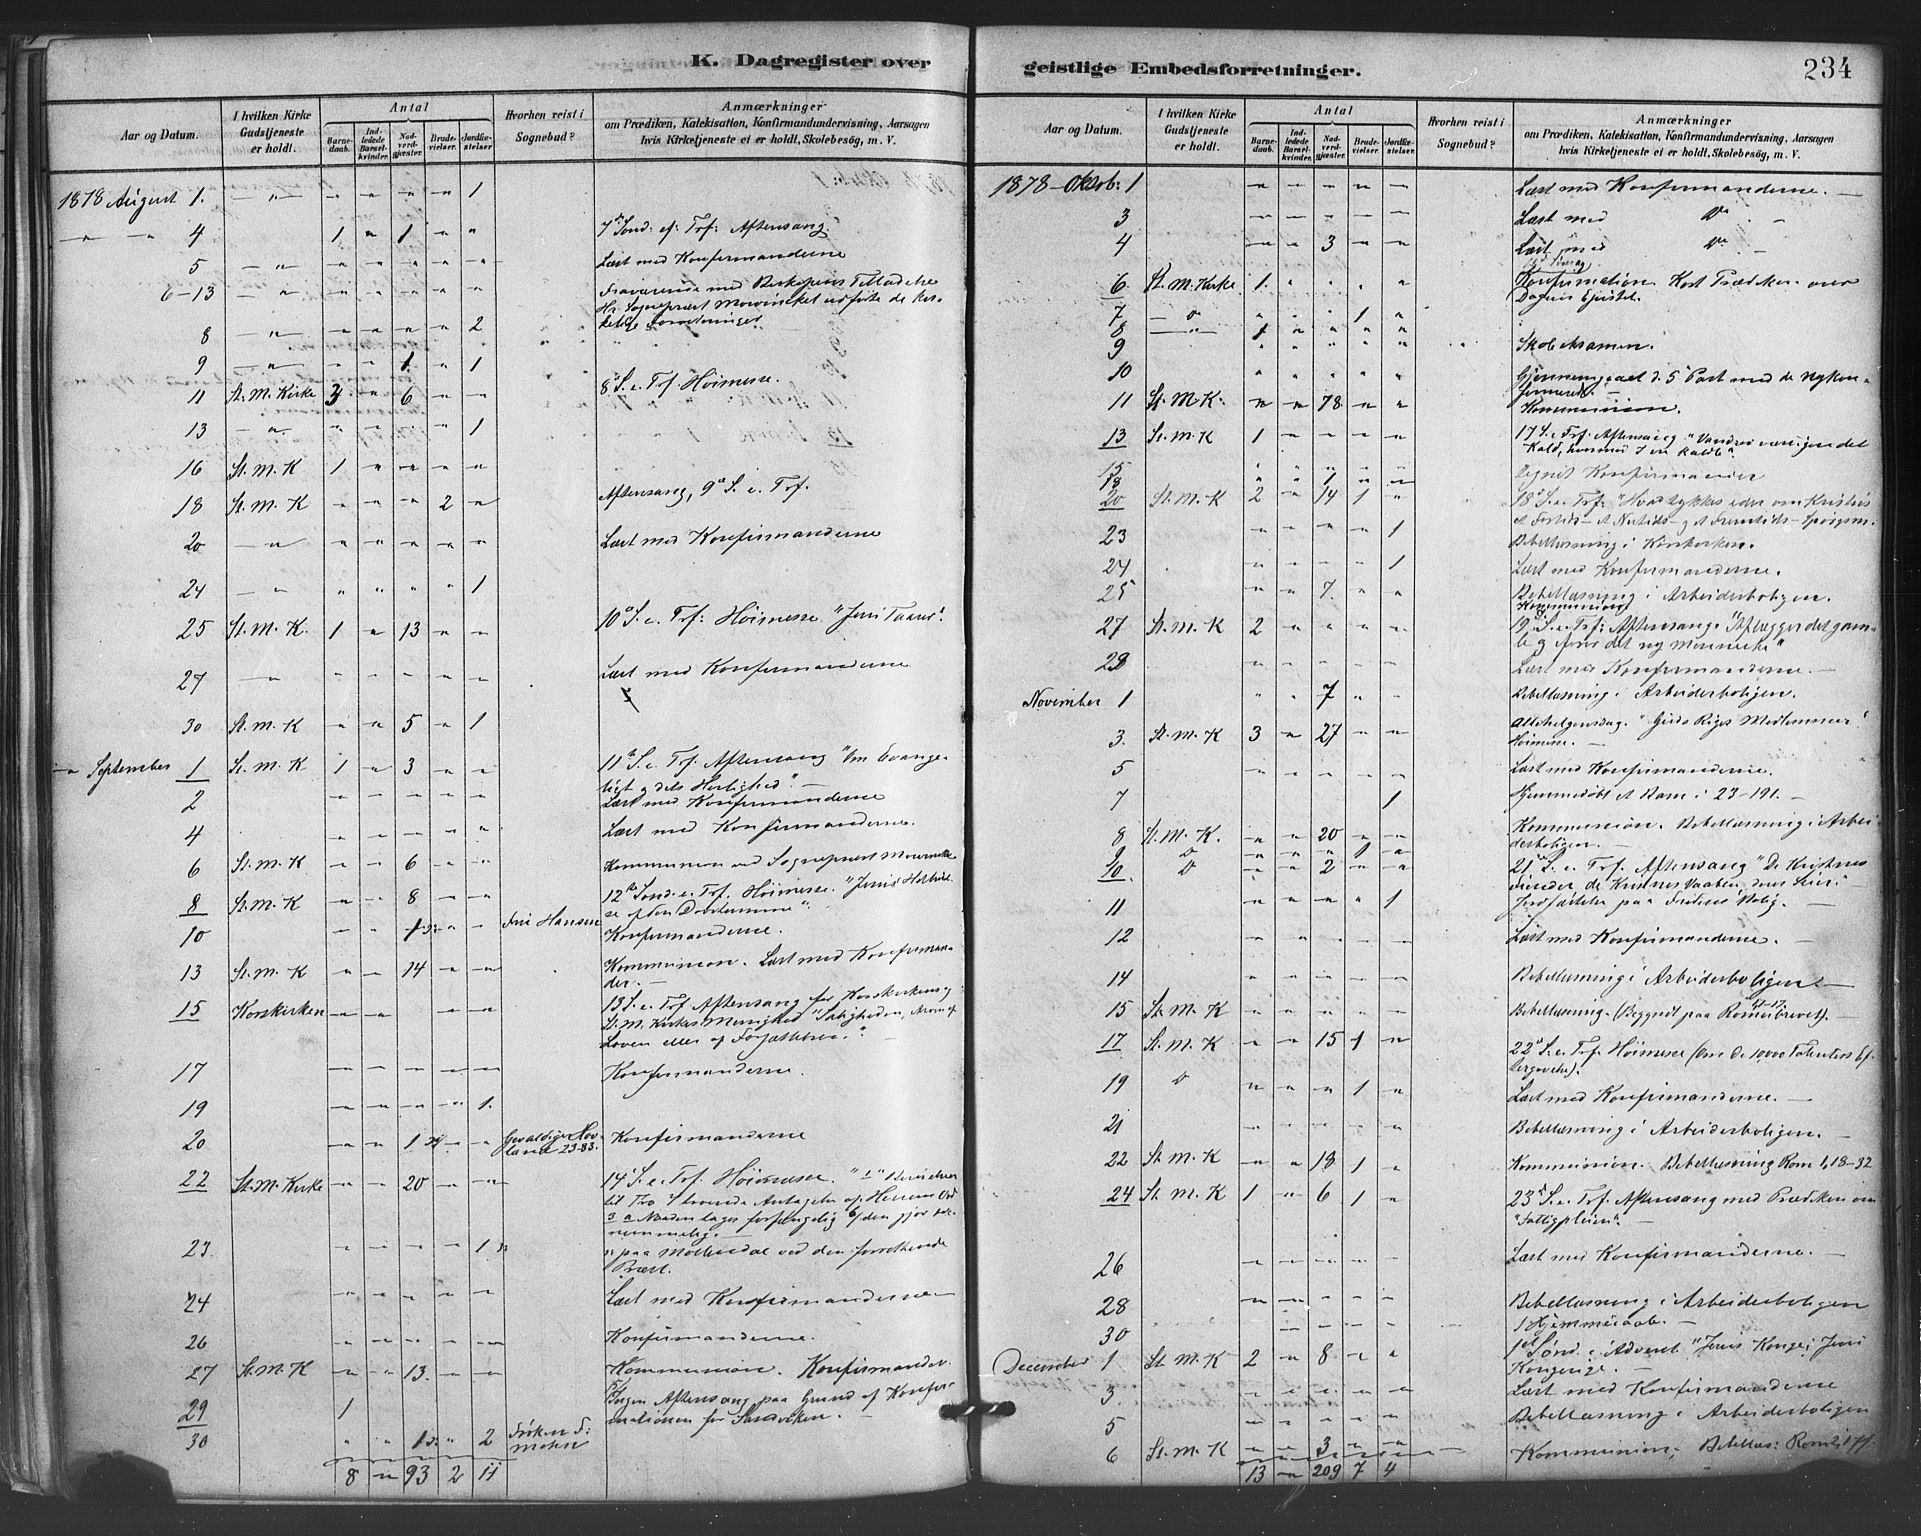 K. Dagregister over
Aar og Datum.
I hvilken Kirke Gudstjeneste er holdt.
Antal
Barnedaab.
Indledede Barselkvinder.
Nadverdgjæster
Brudevielser.
Jordfæstelser.
Hvorhen reist i Sognebud?
Anmærkninger
om Prædiken, Katekisation, Konfirmandundervisning, Aarsagen
hvis Kirketjeneste ei er holdt, Skolebesøg, m. V.
1878 August 1. — " — " " " " 1
— " — 4 1 " 1 " " 7de Sönd: ef: Trf: Aftensang.
5 — " — " " " " " Læst med Konfirmanderne
6-13 — " — " " " " " Fraværende med Biskopens Tilladelse
Hr. Sogneprest Mowinckel udførte de kir-
kelige Forretninger
8 — " — " " " " 2
9 — " — " " 1 " 1
11 St. M. Kirke 3 " 6 " " 8de S. e. Trf Höimesse.
13 — " — " " " " 1
16 St. M. K 1 " " " "
18 St. M. K " " " 2 " Aftensang, 9de S. e. Trf.
20 — " — " " " " " Læst med Konfirmanderne
24 — " — " " " " 1
25 St. M. K. 1 " 13 " " 10de S. e. Trf: Höimesse "Jesu Taarer".
27 — " — " " " " " Læst med Konfirmanderne
30 St. M. K " " 5 " 1
— " September 1 St. M. K 1 " 3 " " 11te S. e. Trf. Aftensang "Om Evange-
liet og dets Herlighed". —
2 " " " " " Læst med Konfirmanderne
4 " " " " " Læst med Konfirmanderne.
6 St. M. K " " 6 " " Kommunion ved Sogneprest Mowinckel
8 St. M. K " " 8 " " 12te Sönd. e. Trf. Höimesse. "Jesu
10 " " 1 " " Hansen Konfirmanderne.
13 St. M. K " " 14 " " Kommunion. Læst med Konfirman-
der. —
15 Korskirken " " " " 13 S. e. Trf Aftensang for Korskirkens og
St. M. Kirkes Menighed "Saligheden,
Loven eller af Forjættelsen". —
17 " " " " " Konfirmanderne.
19 " " " " 1.
20 " " 1 " " Gevaldiger Hov-
land 23-83. Konfirmanderne
22 St. M. Kirke " " 20 " " 14de S. e. Trf Höimesse.
til Tro
nemmelig. —
23. " " " " 1 paa Möllendal ved den forrettende
Præst.
24 " " " " " Læst med Konfirmanderne —
26 " " " " " Konfirmanderne.
27 St. M. K " " 13. " " Kommunion. Konfirmander.
29 1 Ingen Aftensang paa Grund af Konfir-
mationen for Sandviken. —
30 " " 1 " 2 Fröken
8 " 93 2 11
geistlige Embedsforretninger.
234
Aar og Datum.
I hvilken Kirke Gudstjeneste er holdt.
Antal
Barnedaab.
Indledede Barselkvinder.
Nadverdgjæster
Brudevielser.
Jordfæstelser.
Hvorhen reist i Sognebud?
Anmærkninger
om Prædiken, Katekisation, Konfirmandundervisning, Aarsagen
hvis Kirketjeneste ei er holdt, Skolebesøg, m. V.
1878 — Oktob: 1 " " " " " Læst med Konfirmanderne. —
3 " " " " " Læst med Do —
4 " " 3 " " Læst med Do —
6 St. M. Kirke 1. " " " " Konfirmation. Kort Prædiken over
Dagens Epistel.
7 — " — " " " 1 "
8 — " — 1 " " " "
9 " " " " " Skoleexamen.
10 " " " " " Gjennemgaaet d. 5te Part med de nykon-
firmerede. —
11 St. M. K. " " 78. " " Kommunion.
13 St. M. K 1 " " " " 17 S. e. Trf. Aftensang "Vandrer værdigen det
Kald, hvormed I ere kaldte".
15 " " " " " Tegnet Konfirmander
18 " " 1 " "
20 St. M. K 2 " 14 1 " 18de S. e. Trf: "Hvad tykkes eder om Kristus
et Fortids- et Nutids- og et Fremtids-Spörgsm.
23 " " " " 1 Bibellæsning i Korskirken.
24 " " " " 1 Læst med Konfirmanderne.
25 " " 7. " " Bibellæsning i Arbeiderboligen.
Kommunion
27 St. M. K 2 " " " " 19de S. e. Trf: Aftensang "Aflægger det gam-
le og iförer det ny Menneske"
28 " " " " " Læst med Konfirmanderne. —
November 1 " " 7 " " Bibellæsning i Arbeiderboligen.
3. St. M. K 3 " 27 " " Allehelgensdag. "Guds Riges Medlemmer"
Höimesse. —
5 " " " " " Læst med Konfirmanderne.
7 " " " " 1 Hjemmedöbt et Barn i 23-191. —
8 St. M. K. " " 20 " " Kommunion. Bibellæsning i Arbei-
derboligen. —
9 Do " " " 1 "
10. Do " " 2 " " 21de S. e. Trf. Aftensang "De Kristnes
Fiender, de Kristnes Vaaben, deres Seier". —
11 " " " " 1 Jordfæstelse paa
12 " " " " " Læst med Konfirmanderne. —
14 " " " " " Bibellæsning i Arbeiderboligen —
15 St. M. K " " " " " Bibellæsning. (Begyndt paa Romerbrevet). —
17 St. M. K " " 15 1 " 22de S. e. Trf. Höimesse (Om de 10,000 Talenters Ef-
tergivelse).
19 Do " " " 1 " Læst med Konfirmanderne. —
21 " " " " " Bibellæsning i Arbeiderboligen. —
22 St. M. K " " 18 1 " Kommunion. Bibellæsning Rom 1,18-32
24 St. M. K 1 " 6 1 " 23de S. e. Trf. Aftensang med Prædiken om
"Fattigpleien". —
26 " " " " " Læst med Konfirmanderne. —
28 " " " " " Bibellæsning i Arbeiderboligen
30 " " " " " 1 Hjemmedaab. —
December 1 St. M. K 2 " 8 " " 1ste Sönd. i Advent "Jesus Konge, Jesu
Kongerige. —
3 " " " " " Læst med Konfirmanderne
5 " " " " " Bibellæsning i Arbeiderboligen
6 St. M. K " " 3 " " Kommunion. Bibellæs: Rom
13 " 209 7 4